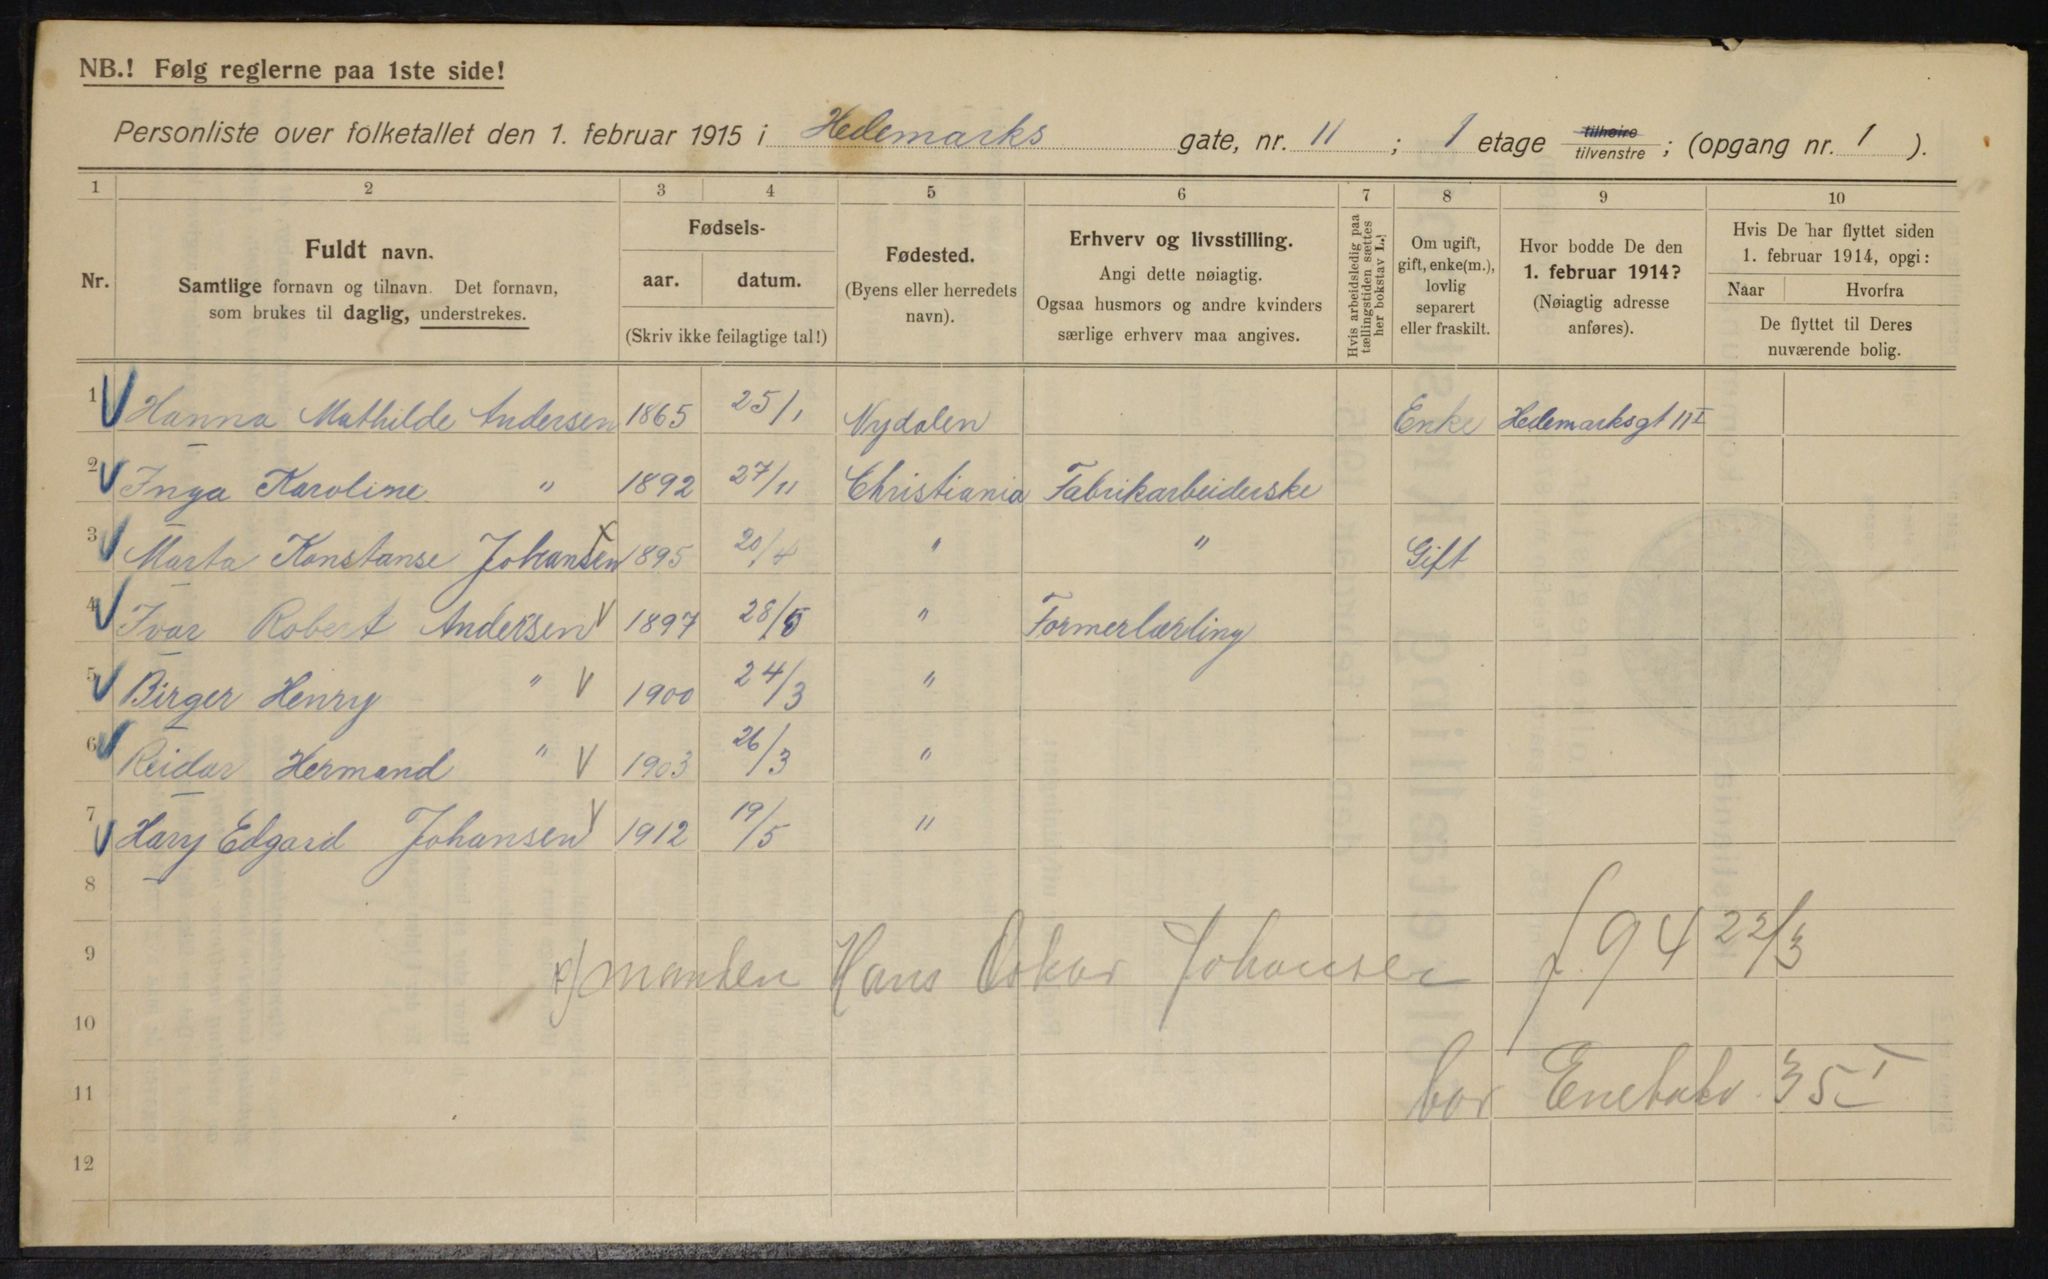 NB.! Følg reglerne paa 1ste side!
Personliste over folketallet den 1. februar 1915 i Hedemarks gate, nr. 11 ; 1 etage tilhøire tilvenstre ; (opgang nr. 1 ).
1 2 3 4 5 6 7 8 9 10
Nr.
Fuldt navn.
Samtlige fornavn og tilnavn. Det fornavn,
som brukes til daglig, understrekes.
Fødsels-
aar. datum.
(Skriv ikke feilagtige tal!)
Fødested.
(Byens eller herredets
navn).
Erhverv og livsstilling.
Angi dette nøiagtig.
Ogsaa husmors og andre kvinders
særlige erhverv maa angives.
Hvis arbeidsledig paa
tællingstiden sættes
her bokstav L.!
Om ugift,
gift, enke(m.),
lovlig
separert
eller fraskilt.
Hvor bodde De den
1. februar 1914?
(Nøiagtig adresse
anføres).
Hvis De har flyttet siden
1. februar 1914, opgi:
Naar Hvorfra
De flyttet til Deres
nuværende bolig.
1 Hanna Mathilde Andersen 1865 25/1 Nydalen Enke Hedemarksgt 11 I
2 Inga Karoline " 1892 27/11 Christiania Fabrikarbeiderske
3 Marta Konstanse Johansen x 1895 20/4 " " Gift
4 Ivar Robert Andersen 1897 28/8 " Formerlærling
5 Birger Henry " 1900 24/3 "
6 Reidar Hermand " 1903 26/3 "
7 Hary Edgard Johansen 1912 19/5 "
8
9 x) manden Hans Oskar Johansen f. 94 22/3
10
11 bor Enebakv. 35 I
12